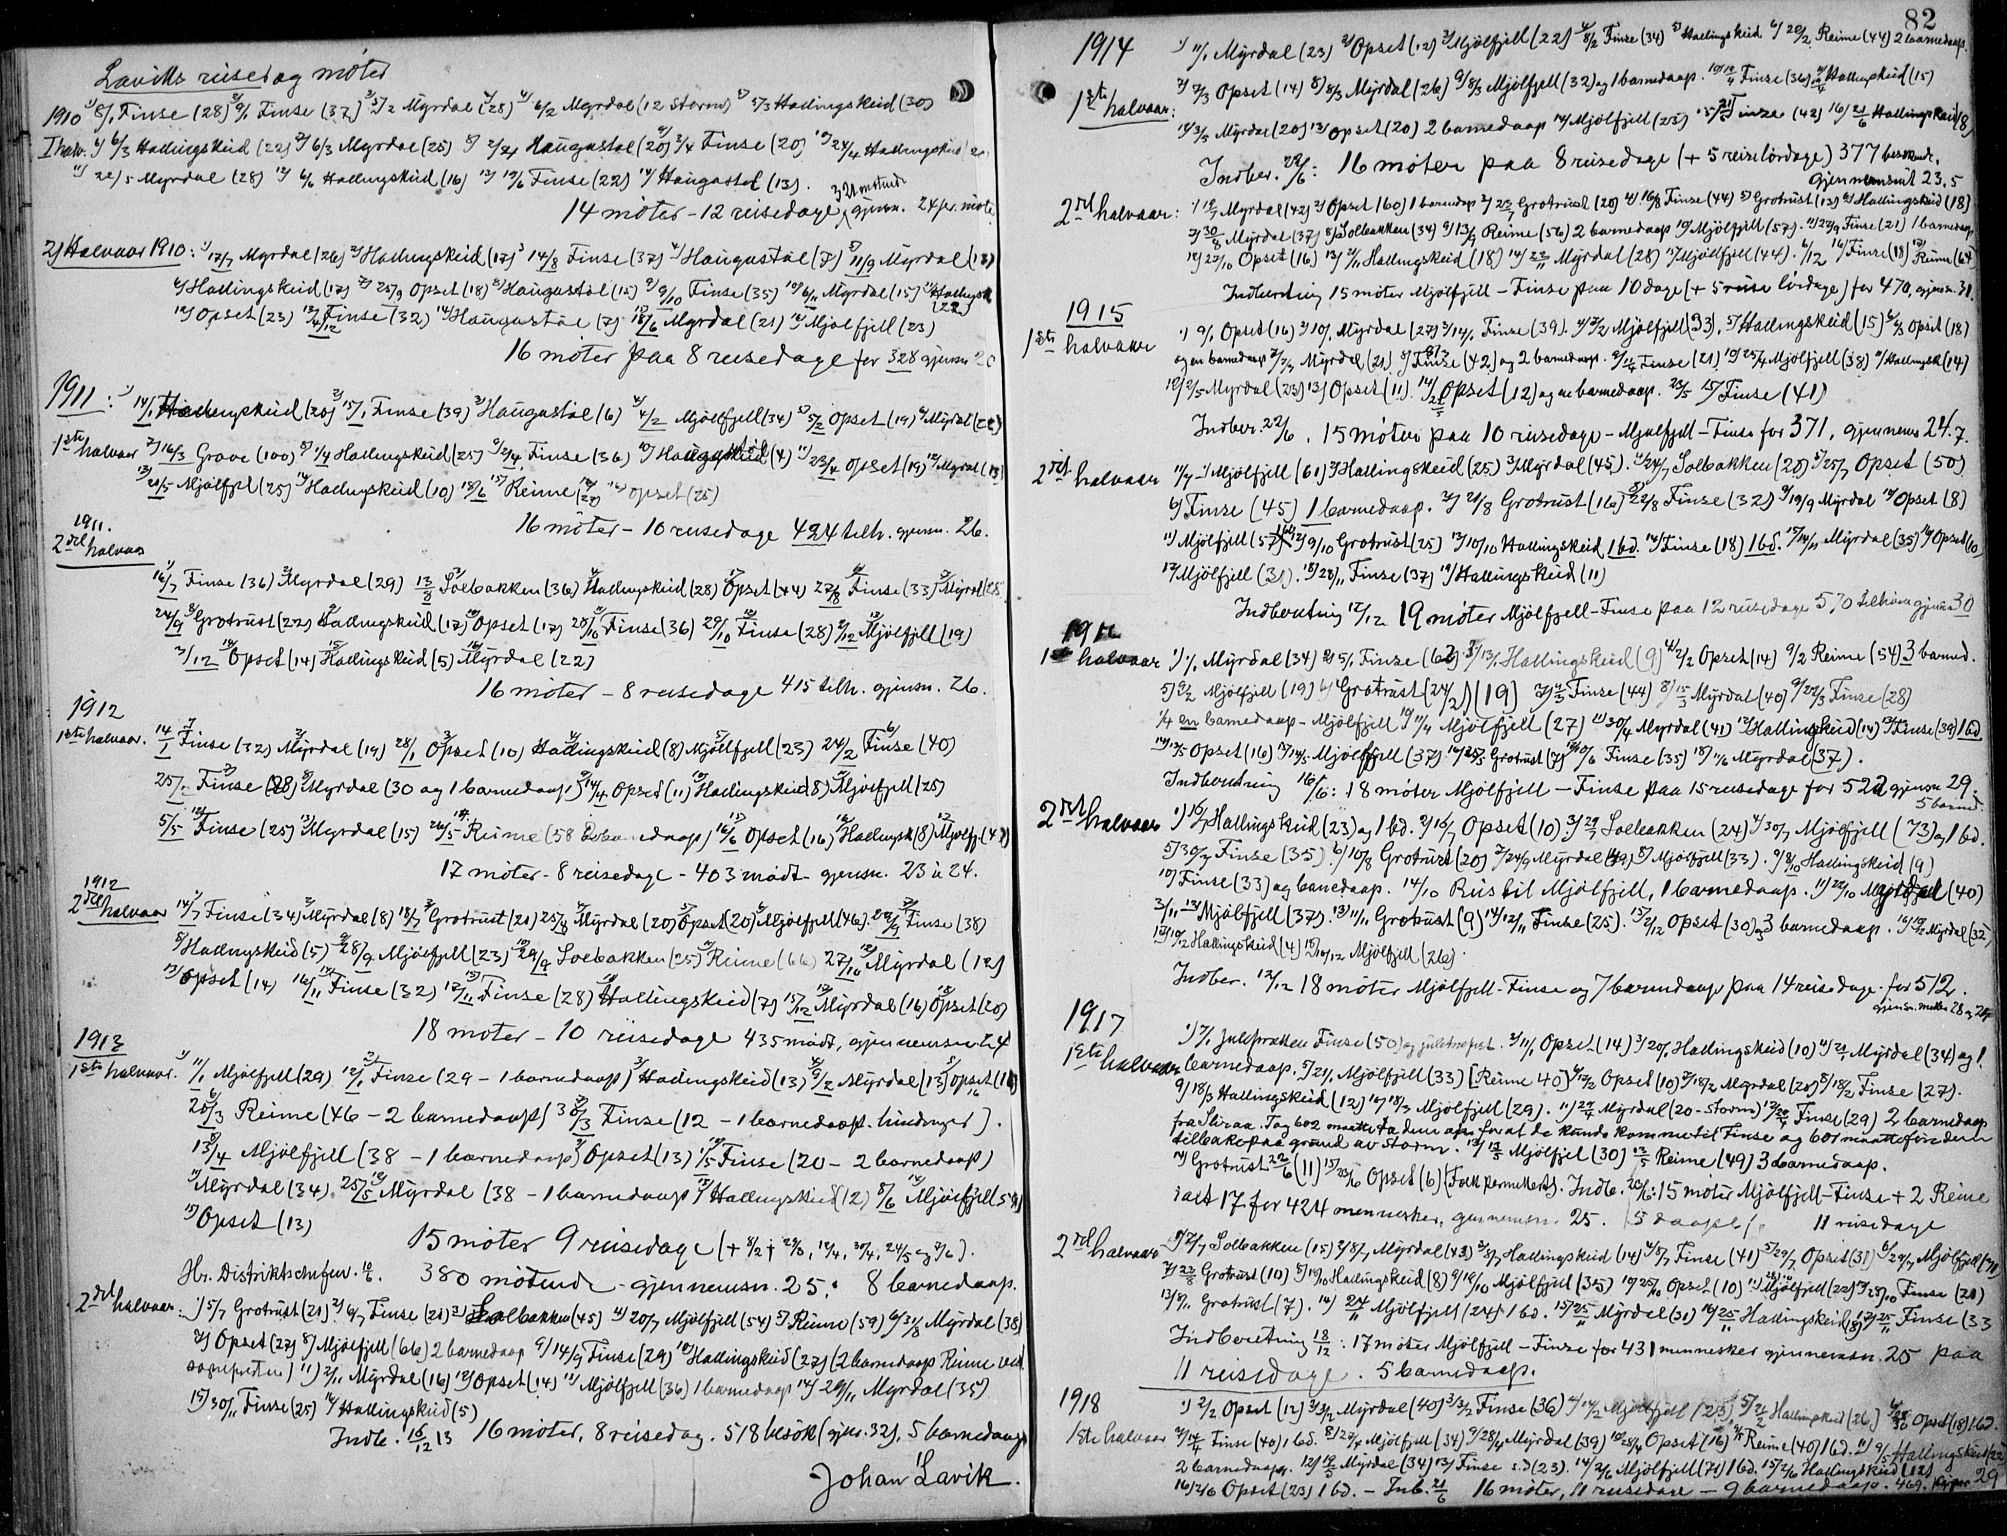 Laviks reisedag møter
1910 1) 8/1 Finse (28) 2) 9/1 Finse (37) 3) 5/2 Myrdal (28) 4) 6/2 Myrdal (12 storm) 5) 5/3 Hallingskeid (30)
I halv. 6) 6/3 Hallingskeid (22) 7) 6/3 Myrdal (25) 8) 2/4 Haugastøl (20) 9) 3/4 Finse (20) 10) 24/4 Hallingskeid
11) 22/5 Myrdal (28) 12) 6/6 Hallingskeid (16) 13) 19/6 Finse (22) 14) Haugastøl (13).
14 møter - 12 reisedage, gjensn. 24 pr. møte
2) Halvaar 1910: 1) 17/7 Myrdal (26) 2) Hallingskeid (17) 3) 14/8 Finse (37) 4) Haugastøl (7) 5) 11/9 Myrdal (13)
6) Hallingskeid (17) 7) 25/9 Opset (18) 8) Haugastøl (15) 9) 9/10 Finse (35) 10) 6/11 Myrdal (15) 11) Hallingsk (22)
12) Opset (23) 13) 4/12 Finse (32) 14) Haugastøl (7) 15) 18/6 Myrdal (21) 16) Mjølfjell (23)
16 møter paa 8 reisedage for 328 gjensn 20
1911: 1) 14/1 Hallingskeid (20) 2) 15/1 Finse (39) 3) Haugastøl (6) 4) 4/2 Mjølfjell (34) 5) 5/2 Opset (19) 6) Myrdal (22)
1ste halvaar 7) 16/3 Grove (100) 8) 1/4 Hallingskeid (25) 9) 2/4 Finse (36) 10) (4) 11) 23/4 Opset (19) 12) Myrdal (13)
13) 20/5 Mjølfjel (25) 14) Hallingskeid (10) 18/6 15) Reime (27) 16) Opset (25)
16 møter - 10 reisedage 424 tilh. gjensn. 26.
1911.
2det halvaar
16/7 Finse (36) Myrdal (29) 13/8 Solbakken (36) Hallingskeid (28) Opset (44) 27/8 Finse (33) Myrdal (28
24/9 Grotrust (22) Hallingskeid (17) Opset (17) 28/10 Finse (36) 29/10 Finse (28) 2/12 Mjølfjell (19)
3/12 Opset (14) Hallingskeid (5) Myrdal (22)
16 møter - 8 reisedage 415 tilh. gjensn. 26.
1912
1ste halvaar. 14/1 Finse (32) Myrdal (19) 28/1 Opset (10) Hallingskeid (8) Mjølfjell (23) 24/2 Finse (40)
25/2 Finse (28) Myrdal (30 og 1 barnedaap) 14/4 Opset (11) Hallingskeid (8) Mjølfjell (25)
5/5 Finse (25) Myrdal (15) 26/5 Reime (58 barnedaap) 16/6 Opset (16) Hallingsk (8) Mjølfj.
17 møter - 8 reisedage - 403 mødt - gjensn. 23 à 24.
1912
2det halvaar 14/7 Finse (34) Myrdal (8) 18/7 Grotrust (20) 25/8 Myrdal (20) Opset (20) Mjølfjell (46) 22/9 Finse (38)
Hallingskeid (5) 28/9 Mjølfjell (23) 29/9 Solbakken (25) Reime (66) 27/10 Myrdal (12)
Opset (14) 16/11 Finse (32) 17/11 Finse (28) Hallingskeid (7) 15/12 Myrdal (16) Opset (20)
18 møter - 10 reisedage 435 mødt, gjennemsn 24
1913
1ste halvaar. 1) 11/1 Mjølfjell (29) 12/1 Finse (29 - 1 barnedaap) 3) Hallingskeid (13) 9/2 Myrdal (13) 5) Opset
25/3 Reime (46 - 2 barnedaap) 30/3 Finse (12 - 1 barnedaap. hindringer).
13/4 Mjølfjell (38 - 1 barnedaap) Opset (13) 1/5 Finse (20 - 2 barnedaap)
Myrdal (34) 25/5 Myrdal (38 - 1 barnedaap) Hallingskeid (12) 8/6 Mjølfjell
15) Opset (13)
15 møter 9 reisedage (+ 8/2 + 29/3, 12/4, 30/4, 24/5 og 7/6).
Hr. Distriktschefen. 10/6. 380 møtende - gjennemsn. 25: 8 barnedaap.
2det halvaar: 1) 5/7 Grotrust (21) 2) 6/7 Finse (21) 3) Solbakken (45) 4) 20/7 Mjølfjell (54) 5) Reime (59) 6) 31/8 Myrdal (38)
7) Opset (27) 8) Mjølfjell (66) 2 barnedaap 9) 14/9 Finse (29) 10) Hallingskeid (27) (2 barnedaap Reime ved
sognepresten) 11) 2/11 Myrdal (16) 12) Opset (14) 13) Mjølfjell (36) 1 barnedaap 14) 29/11 Myrdal (35)
15) 30/11 Finse (25) 16) Hallingskeid (5)
Indb. 16/12 13 16 møter, 8 reisedag. 518 besøk (gjsn. 32), 5 barnedaap
Johan Lavik.
82
1914 1) 11/1 Myrdal (23) 2) Opset (12) 3) Mjølfjell (22) 4) 8/2 Finse (34) 5) Hallingskeid 6) 20/2 Reime (44) 2 barnedaap.
1ste halvaar: 7) 7/3 Opset (14) 8) 8/3 Myrdal (26) 9) 8/3 Mjølfjell (32) og 1 barnedaap. 10) 19/4 Finse (36) 11) Hallingskeid (15)
12) 3/5 Myrdal (20) 13) Opset (20) 2 barnedaap 14) Mjølfjell (25) 15) Finse (42) 16) 21/6 Hallingskeid (8)
Indber. 22/6: 16 møter paa 8 reisedage (+ 5 reiselørdage) 377 besøkende.
gjennemsnit 23,5
2det halvaar: 1) 12/7 Myrdal (42) 2) Opset (60) 1 barnedaap 3) Grotrust (20) 4) 16/8 Finse (44) 5) Grotrust (13) 6) Hallingskeid (18)
7) 30/8 Myrdal (37) 8) Solbakken (34) 9) 13/9 Reime (56) 2 barnedaap 10) Mjølfjell (57). 11) 27/9 Finse (21) 1 barnedaap
12) 27/10 Opset (16) 13) 2/11 Hallingskeid (18) 14) 22/11 Myrdal (28) 15) Mjølfjell (44). 6/12 16) Finse (18) 17) Reime (64)
Indberetning 15 møter Mjølfjell - Finse paa 10 dage (+ 5 reise lørdage) for 470, gjensn. 31.
1915
1ste halvaar 1) 9/1 Opset (16) 2) 10/1 Myrdal (27) 3) 14/1 Finse (39). 4) 7/2 Mjølfjell (33). 5) Hallingskeid (15) 6) 6/3 Opset (18)
og en barnedaap 7) 7/3 Myrdal (21) 8) Finse (42) og 2 barnedaap. 9) 11/4 Finse (21) 10) 25/4 Mjølfjell (38) 11) Hallingsk (14)
12) 2/5 Myrdal (23) 13) Opset (11) 14) Opset (12) og en barnedaap. 23/5 15) Finse (41)
Indber. 22/6. 15 møter paa 10 reisedage - Mjølfjell - Finse for 371, gjennems 24.7.
2det halvaar 11/7 1) Mjølfjell (61) 2) Hallingskeid (25) 3) Myrdal (45). 4) 24/7 Solbakken (20) 5) 25/7 Opset (50)
6) Finse (45) 1 barnedaap. 7) 21/8 Grotrust (16) 8) 22/8 Finse (32) 9) 19/9 Myrdal 10) Opset (8)
11) Mjølfjell (57) 12) 9/10 Grotrust (25) 13) 10/10 Hallingskeid 1 bd. 14) Finse (18) 1 bd. 15) 14/11 Myrdal (35) 16) Opset (10)
17) Mjølfjell (31). 18) 28/11 Finse (37) 19) Hallingskeid (11)
Indberetning 12/12 19 møter Mjølfjell - Finse paa 12 reisedage 570 tilhøre gjensn 30
1916
1ste halvaar 1) 1/1 Myrdal (34) 2) 5/1 Finse (62) 3) 13/1 Hallingskeid (9) 4) 2/2 Opset (14) 9/2 Reime (54) 3 barned.
5) 9/2 Mjølfjell (19) 6) Grotrust (24/2) (19) 7) Finse (44) 8) 15/3 Myrdal (40) 9) 22/3 Finse (28)
1/4 en barnedaap - Mjølfjell 10) 11/4 Mjølfjell (27) 11) 30/4 Myrdal (41) 12) Hallingskeid (14) 13) Finse (39) 1 bd
14) Opset (16) 15) 14/5 Mjølfjell (37) 16) 25/5 Grotrust (7) 17) 10/6 Finse (35) 18) 11/6 Myrdal (37).
Indberetning 16/6: 18 møter Mjølfjell - Finse paa 15 reisedage for 522 gjensn 29.
5 barned
2det halvaar 1) 16/7 Hallingskeid (23) og 1 bd. 2) 16/7 Opset (10) 3) 29/7 Solbakken (24) 4) 30/7 Mjølfjell (73) og 1 bd.
5) 30/7 Finse (35). 6) 10/8 Grotrust (20) 7) 24/9 Myrdal (49) 8) Mjølfjell (33). 9) 8/10 Hallingskeid (9)
10) Finse (33) og barnedaap. 14/10 Rus til Mjølfjell, 1 barnedaap. 11) 22/10 Myrdal (40)
3/11 12) Mjølfjell (37). 13) 11/11 Grotrust (9) 14) 12/11 Finse (25). 15) 2/12 Opset (30) og 3 barnedaap. 16) Myrdal (32)
17) 10/12 Hallingskeid (4) 18) 10/12 Mjølfjell (26).
Indber. 12/12 18 møter Mjølfjell - Finse og 7 barnedaap paa 14 reisedage. for 512.
gjensn. mellem 28 og 29
1917
1ste halvaar 1) 7/1 Julepræken Finse (50) og juletræfest. 2) 11/1 Opset (14) 3) 20/1 Hallingskeid (10) 4) 21/1 Myrdal (34) og 1
barnedaap. 5) 21/1 Mjølfjell (33) [Reime 40] 6) 17/2 Opset (10) 7) 18/2 Myrdal (20) 8) 18/2 Finse (27).
9) 18/3 Hallingskeid (12) 10) 18/3 Mjølfjell (29). 11) 29/4 Myrdal (20 - storm) 12) 29/4 Finse (29) 2 barnedaap
fra Sliraa. Tog 602 maatte ta dem op for at de kunde komme til Finse og 601 maatte føre dem
tilbake paa grund av storm. 13) 13/5 Mjølfjel (30) 13/5 Reime (49) 3 barnedaap.
14) Grotrust 22/6 (11) 15) 23/6 Opset (6) (Folk permittert). Indb. 26/6: 15 møter Mjølfjell - Finse + 2 Reime
ialt 17 for 424 mennesker, gjennemsn. 25. (5 daapsh. 11 reisedage
2det halvaar 1) 2/7 Solbakken (15) 2) 8/7 Myrdal (43) 3) 8/7 Hallingskeid (14) 4) 8/7 Finse (41) 5) 29/7 Opset (31) 6) 29/7 Mjølfjell
7) 22/8 Grotrust (10) 8) 19/10 Hallingskeid (8) 9) 19/10 Mjølfjell (35) 10) 25/10 Opset (10) 11) Mjølfjell (22) 12) 28/10 Finse (21)
13) 9/11 Grotrust (7). 14) 24/11 Mjølfjell (24) 1 bd. 15) 25/11 Myrdal (31) 16) 25/11 Hallingskeid (8) 17) 25/11 Finse (33
Indberetning 18/12: 17 møter Mjølfjell - Finse for 431 mennesker gjennemsn. 25 paa
11 reisedage. 5 barnedaap.
1918 1) 2/2 Opset (12) 2) 3/2 Myrdal (40) 3) 3/2 Finse (36) 4) 10/2 Mjølfjell (23) 5) Hallingskeid (26) 6) Opset (18) 1 bd.
1ste halvaar 7) 14/4 Finse (40) 1 bd. 8) 27/4 Mjølfjell (34) 9) 28/4 Myrdal (39) 10) 28/4 Opset (16) Reime (40) 1 bd. 11) 9/5 Hallingskeid (22)
2 barnedaap. 12) 19/5 Myrdal (34) 13) Finse s.d (23). 14) 2/6 Mjølfjell (71) 1 bd. 15) 2/6 Hallingskeid (12)
16) 2/6 Opset (23) 1 bd. - Inb. 21/6 16 møter, 11 reisedage - 9 barnedaap. 469. 29